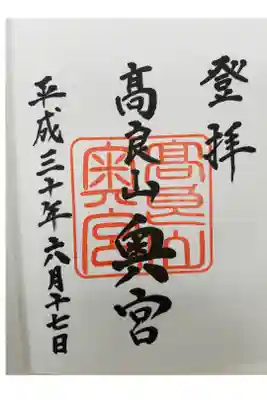 登拝
高良山奥宮
平成三十年六月十七日
高良山
奥宮